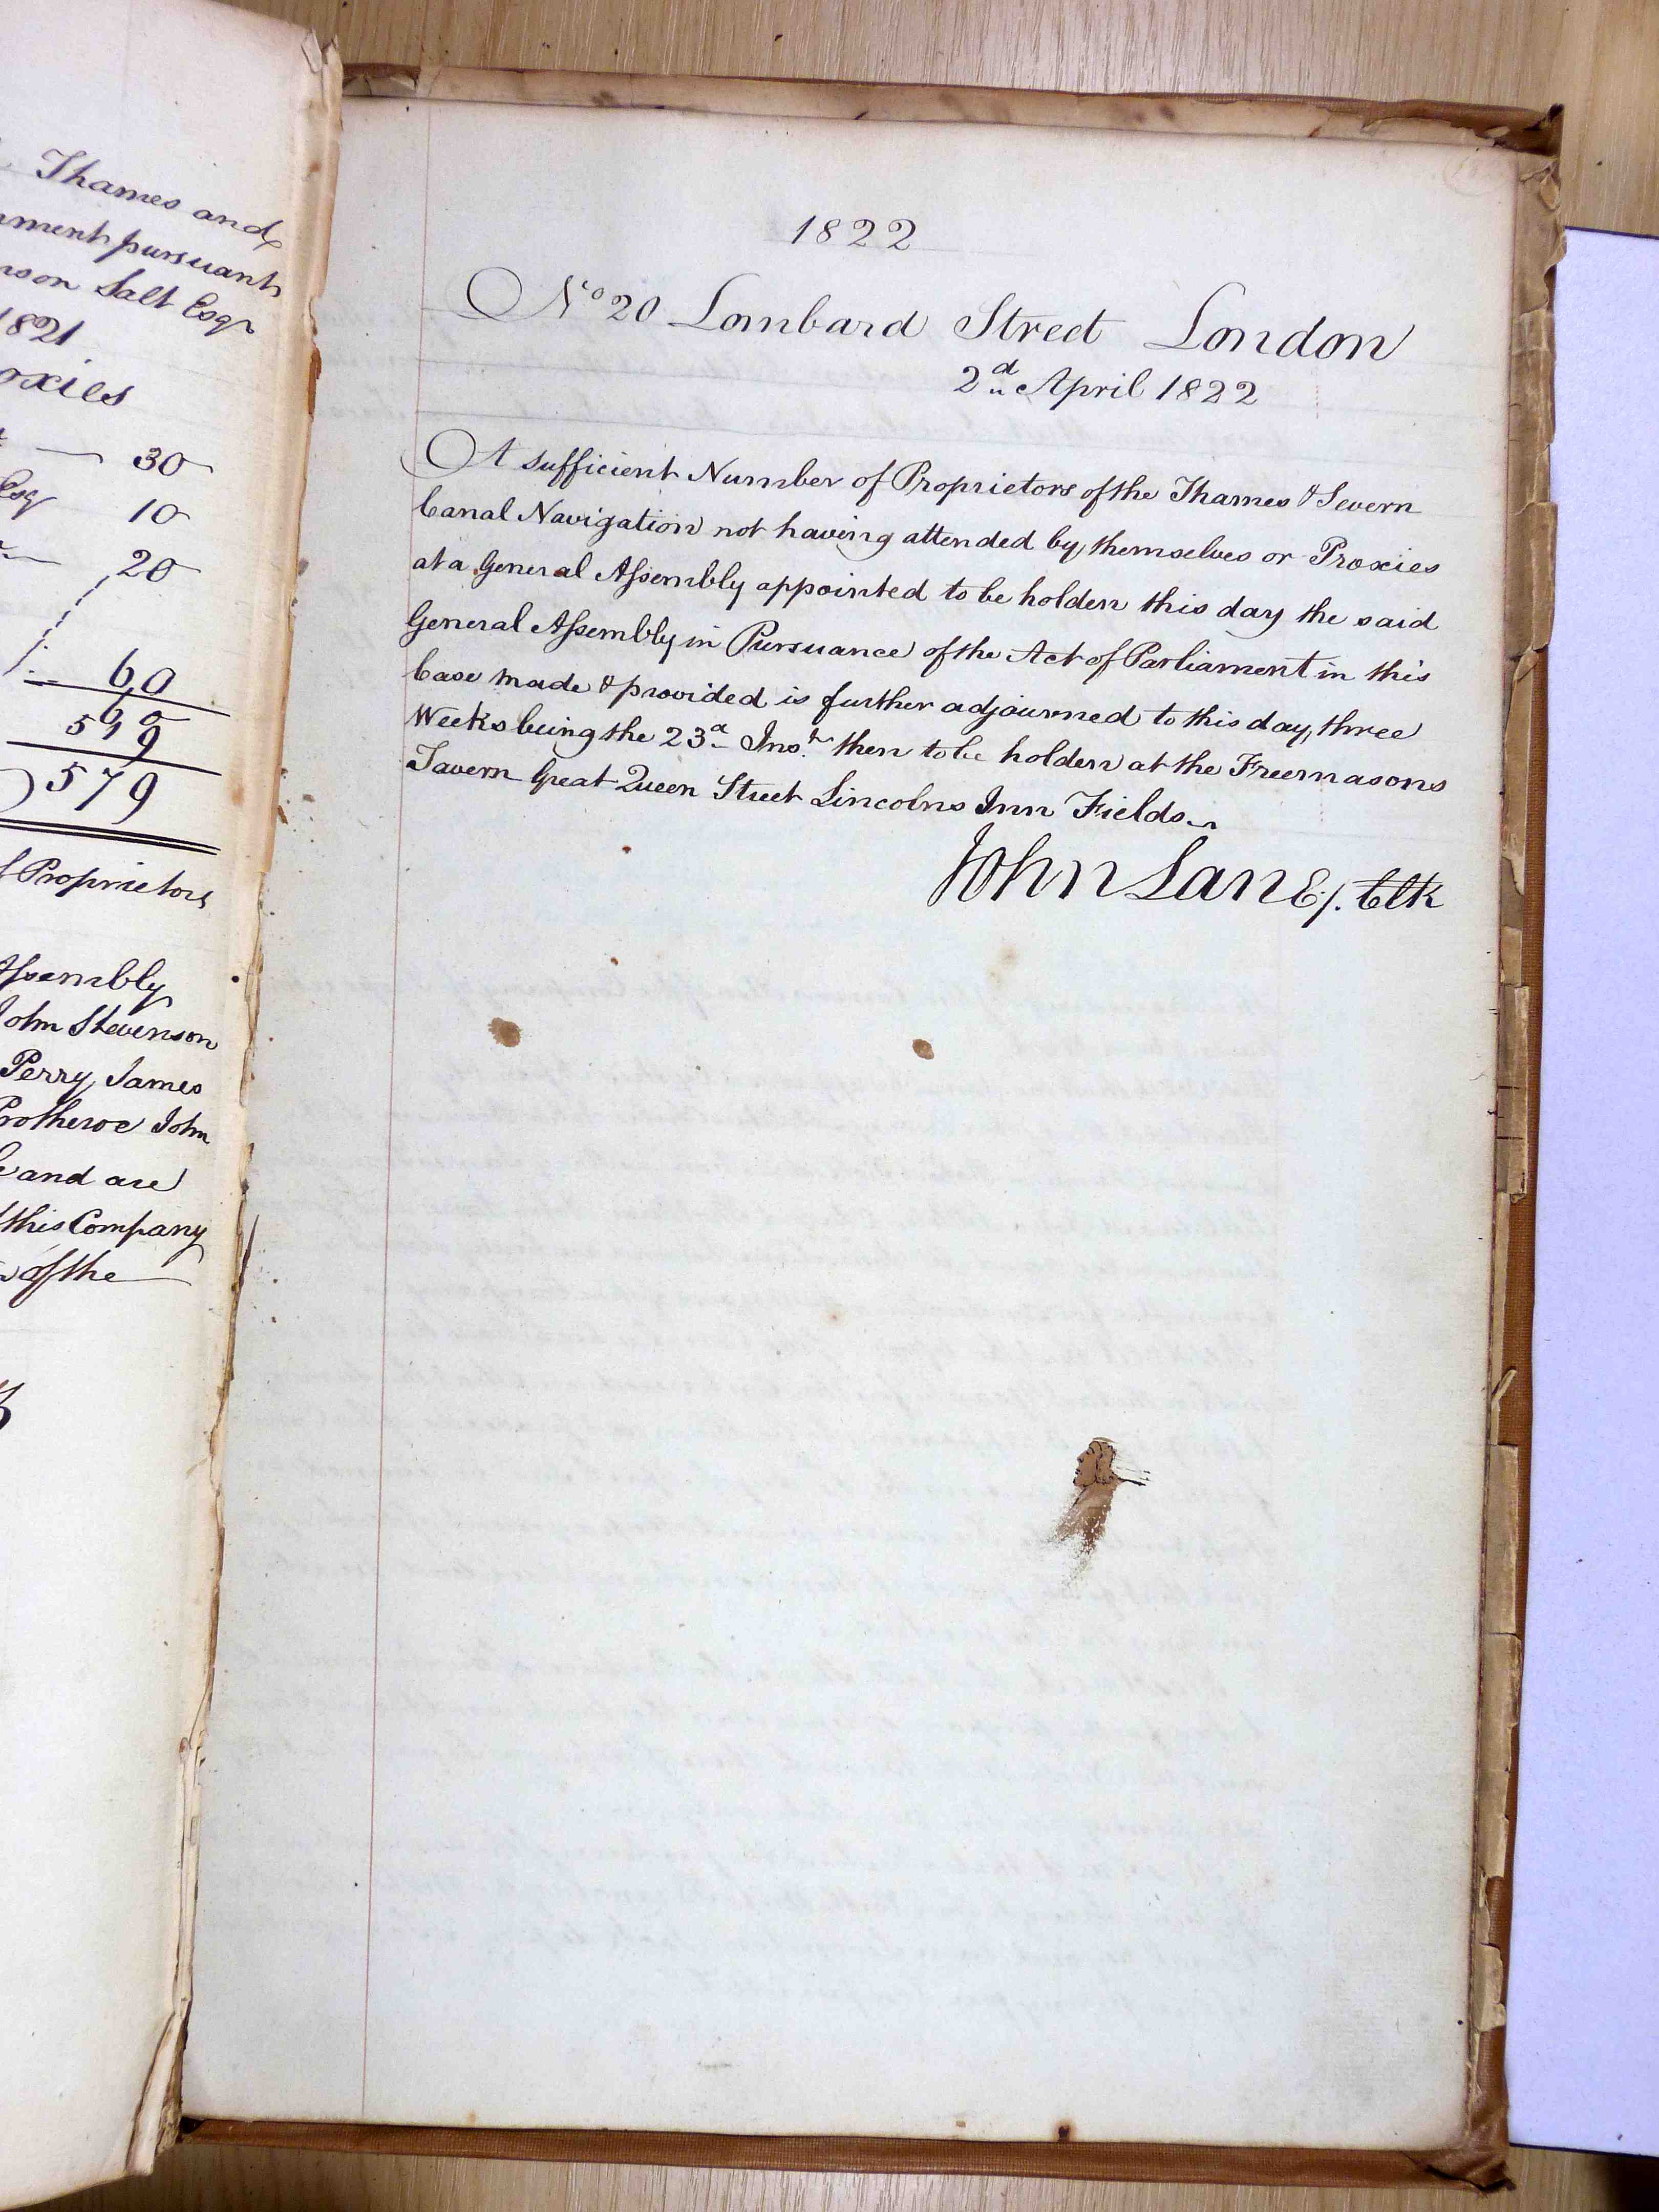 Thames and
ment pursuant
son Salt Esqr
1821
oxies
30
Esqr 10
20
60
60
519
579
f Proprietors
Assembly
John Stevenson
Perry James
Protheroe John
and are
this Company
of the
1822
No 20 Lombard Street London
2d April 1822
A sufficient Number of Proprietors of the Thames & Severn
Canal Navigation not having attended by themselves or Proxies
at a General Assembly appointed to be holden this day the said
General Assembly in Pursuance of the Act of Parliament in this
Case made & provided is further adjourned to this day three
Weeks being the 23d Inst then to be holden at the Freemasons
Tavern Great Queen Street Lincolns Inn Fields
John Lane Clk